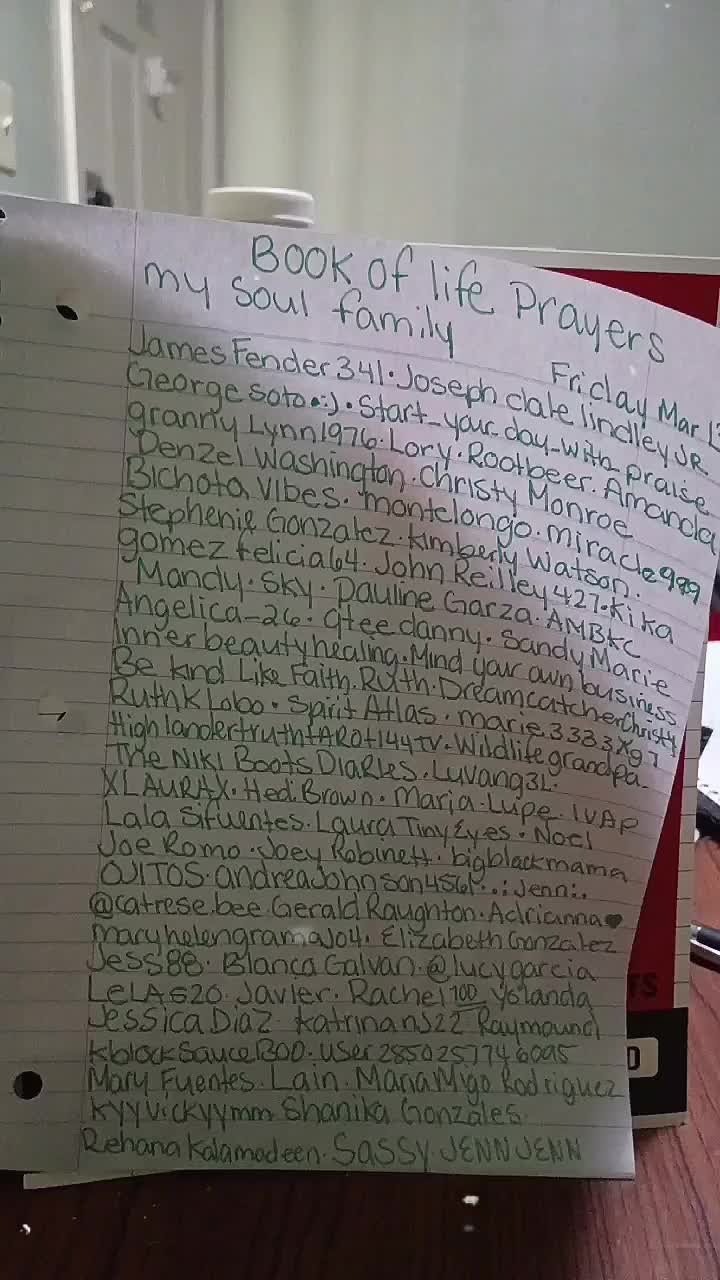 BOOK OF life Prayers
my soul family
Friday Mar 13
James Fender 341 • Joseph dale lindley JR
George soto •:) • Start_your_day_with praise
granny Lynn1976 • Lory • Rootbeer. Amanda
Denzel Washington • Christy Monroe
Bichota Vibes. montelongo. miracle999
Stephenie Gonzalez. Kimberly Watson.
gomez felicia64. John Reilley427. Kika
Mandy • Sky • Pauline Garza. AMBKC
Angelica_26. gteedanny. Sandy Marie
Innerbeautyhealing. Mind your own business
Be kind Like Faith. Ruth. DreamcatcherChristy
RuthKLobo • Spirit Atlas. marie.3333X97
Highlandertruth+AROt144TV. Wildlifegrandpa.
THE NIKI Boots DiaRies. Luvang3L.
XLAURAX. Hedi Brown. Maria. Lupe. IVAP
Lala Sifuentes. Laura Tiny Eyes. Noel
Joe Romo. Joey Robinett. bigblackmama
OJITOS. andreaJohnson456!. .:Jenn:.
@catrese.bee. Gerald Raughton. Adrianna♥
maryhelengramaJ04. Elizabeth Gonzalez
Jess88. Blanca Galvan. @lucygarcia
LeLA520. Javier. Rachel 100 Yolanda
Jessica Diaz. KatrinanJ22 Raymound
KblockSauce1300. User 2850257746095
Mary Fuentes. Lain. MariaMigo Rodriguez
Kyyvickyymm Shanika Gonzales.
Rehana Kalamadeen. Sassy JENNJENN